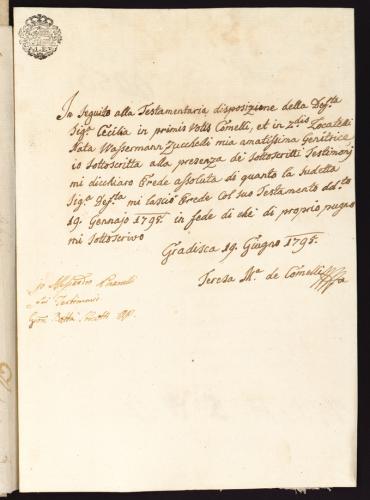 In Seguito alla Testamentaria disposizione della Def.ta
Sig.a Cecilia in primis Votis Comelli, et in 2.dis Locatelli
Nata Wassermann Zucchelli mia amatissima Genitrice
io Sottoscritta alla presenza de Sottoscritti Testimonj
mi dicchiaro Erede assoluta di quanto la Sudetta
Sig.a Def.ta mi lasciò Erede col suo Testamento dd.to
19. Gennajo 1795. in fede di che di proprio pugno
mi Sottoscrivo
Gradisca 19. Giugno 1795.
Teresa M.a de Comelli
Io Alessandro
fui Testimonio
Gio. Batta